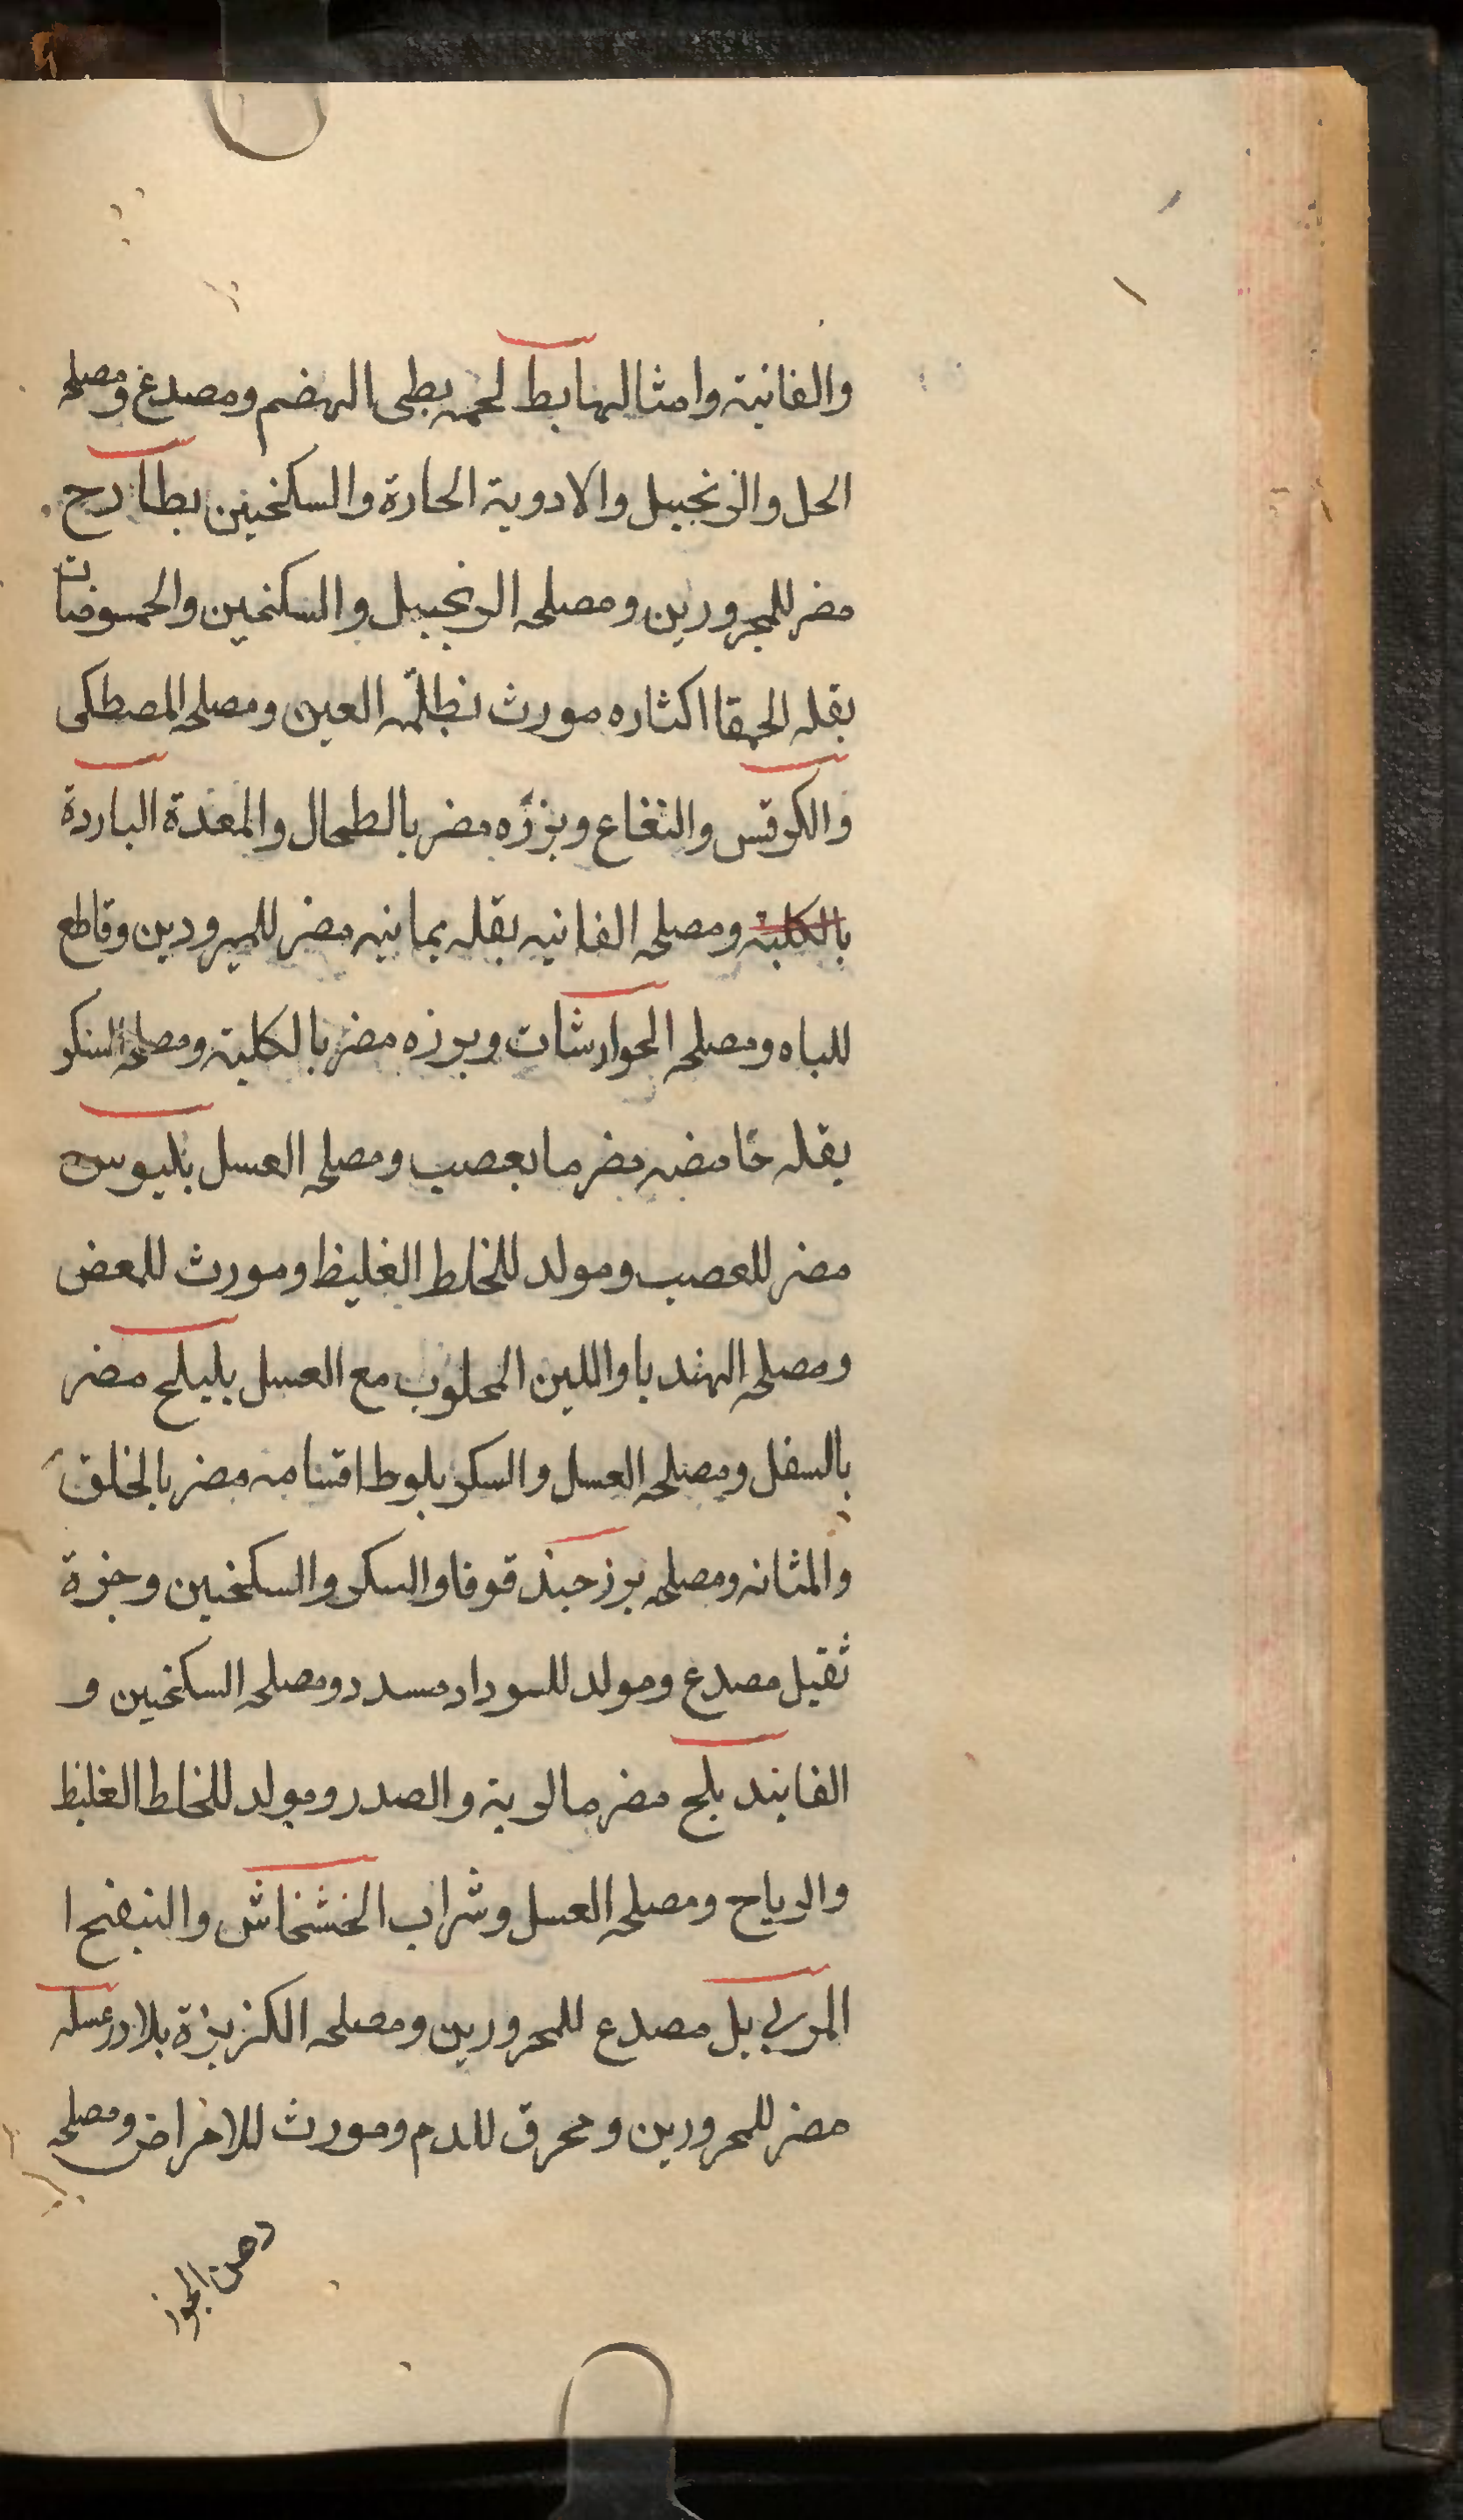 والفانية وامثالها بط لحمه بطى الهضم ومصدع ومصلحه
الحل والزنجبيل والادوية الحارة والسكنجبين بطارح
مضر للمحرورين ومصلحه الزنجبيل والسكنجبين والحموضات
بقله الحمقا اكثاره مورث لظلمه العين ومصلحه المصطكى
والكرفس والنعناع وبزره مضر بالطحال والمعدة الباردة
بالكلية ومصلحه الفانيه بقله يمانيه مضر للمبرودين وقاطع
للباه ومصلحه الجوارشات وبرزه مضر بالكلية ومصلحه السكر
بقله حامضه مضر بعصب ومصلحه العسل بلبوس
مضر للعصب ومولد للخلط الغليظ ومورث للمغص
ومصلحه الهندبا واللبن المحلوب مع العسل بليلج مضر
بالسفل ومصلحه العسل والسكر بلوط اقسامه مضر بالحلق
والمثانه ومصلحه برز حندقوقا والسكر والسكنجبين وخبزة
ثقيل مصدع ومولد للسودا ومسدد ومصلحه السكنجبين و
الفانيد بلح مضر بالرية والصدر ومولد للخلط الغليظ
والرياح ومصلحه العسل وشراب الخشخاش والبنفسج ا
المربى بل مصدع للمحرورين ومصلحه الكزبزة بلادر عسله
مضر للمحرورين ومحرق للدم ومورث للامراض ومصلحه
دهن الجوز